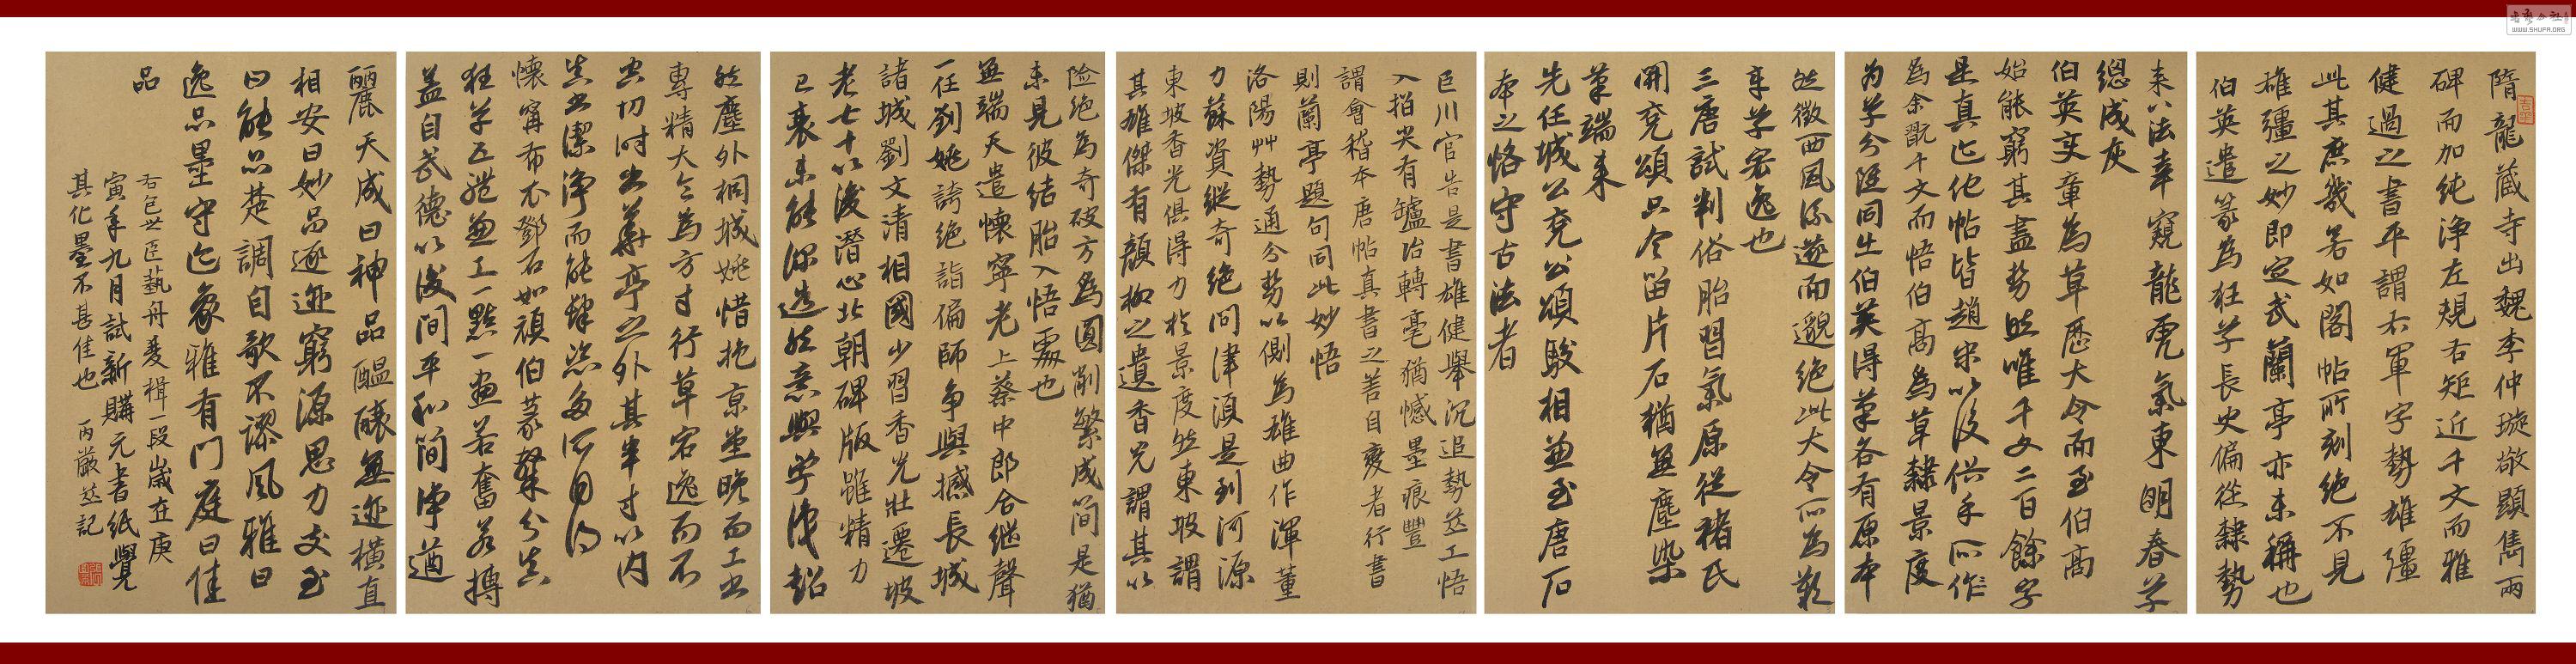 隋龍藏寺出魏李仲璇敬顯儁兩
碑而加純淨左規右矩近千文而雅
健過之書平謂右軍字勢雄彊
此其庶幾若如閣帖所刻絕不見
雄彊之妙即定武蘭亭亦未稱也
伯英遣篆為狂草長史偏從隸勢
來八法幸窺龍虎氣東明春草
總成灰
伯英變章為草歷大令而至伯高
始能窮其盡勢然唯千文二百餘字
是真迹他帖皆趙宋以後俗手所作
為余翫千文而悟伯高為草隸景度
為草分匯同出伯英得筆各有原本
然微西風流遂而邈絕此大令所為歎
章草宏逸也
三唐試判俗胎習氣原從褚氏
開兗頌只今留片石猶無塵染
筆端來
先任城公兗公頌駿相兼至唐石
本之恪守古法者
巨川官告是書雄健舉沉追勢茲工悟
入招尖有罏冶轉毫猶憾墨痕豐
謂會稽本唐帖真書之善自變者行書
則蘭亭題句同此妙悟
洛陽草勢通分勢以側為雄曲作渾董
力蘇資縱奇絕問津須是到河源
東坡香光俱得力於景度然東坡謂
其雄傑有顏柳之遺香光謂其以
險絕為奇破方為圓削繁成簡是猶
未見彼結胎入悟處也
無端天遣懷寧老上蔡中郎合繼聲
一任劉姚誇絕詣偏師爭與撼長城
諸城劉文清相國少習香光壯遷坡
老七十以後潛心北朝碑版雖精力
已衰未能深造然意興學識超
然塵外桐城姚惜抱京堂晚而工書
專精大令為方寸行草宕逸而不
空切時出華亭之外其半寸以內
真書潔淨而能肆恣多所自得
懷甯布衣鄧石如頑伯篆隸分真
狂草五體兼工一點一畫若奮若搏
蓋自武德以後間平和簡淨遒
麗天成曰神品醞釀無迹橫直
相安曰妙品逐迹窮源思力交至
曰能品楚調自歌不謬風雅曰
逸品墨守迹象雅有門庭曰佳
品
右包世臣藝舟雙楫一段歲在庚
寅年九月試新購元書紙覺
其化墨不甚佳也 丙嚴並記
WWW.SHUFA.ORG